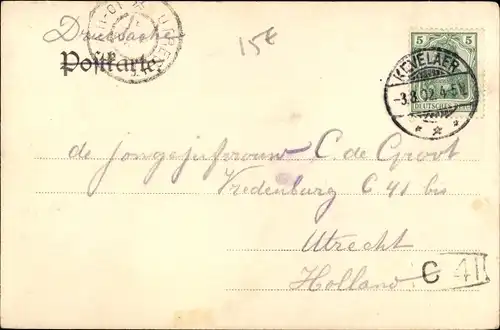 Drucksache
Postkarte
15€
5 5
KEVELAER
-3.8.02.4-5N.
DEUTSCHES REICH
de jongejufvrouw C. de Groot
Vredenburg C 41 bis
Utrecht
Holland
C 41